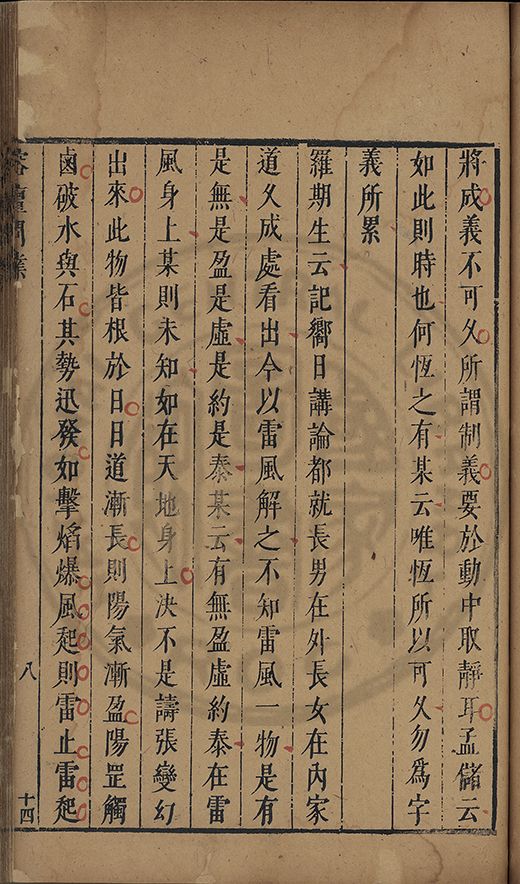 將成義不可久所謂制義要於動中取靜耳孟儲云
如此則時也何恆之有某云唯恆所以可久勿爲字
義所累
羅期生云記嚮日講論都就長男在外長女在內家
道久成處看出今以雷風解之不知雷風一物是有
是無是盈是虛是約是泰某云有無盈虛約泰在雷
風身上某則未知如在天地身上決不是譸張變幻
出來此物皆根於日日道漸長則陽氣漸盈陽罡觸
鹵破水與石其勢迅發如擊熖爆風起則雷止雷起
榕壇問業
八
十四